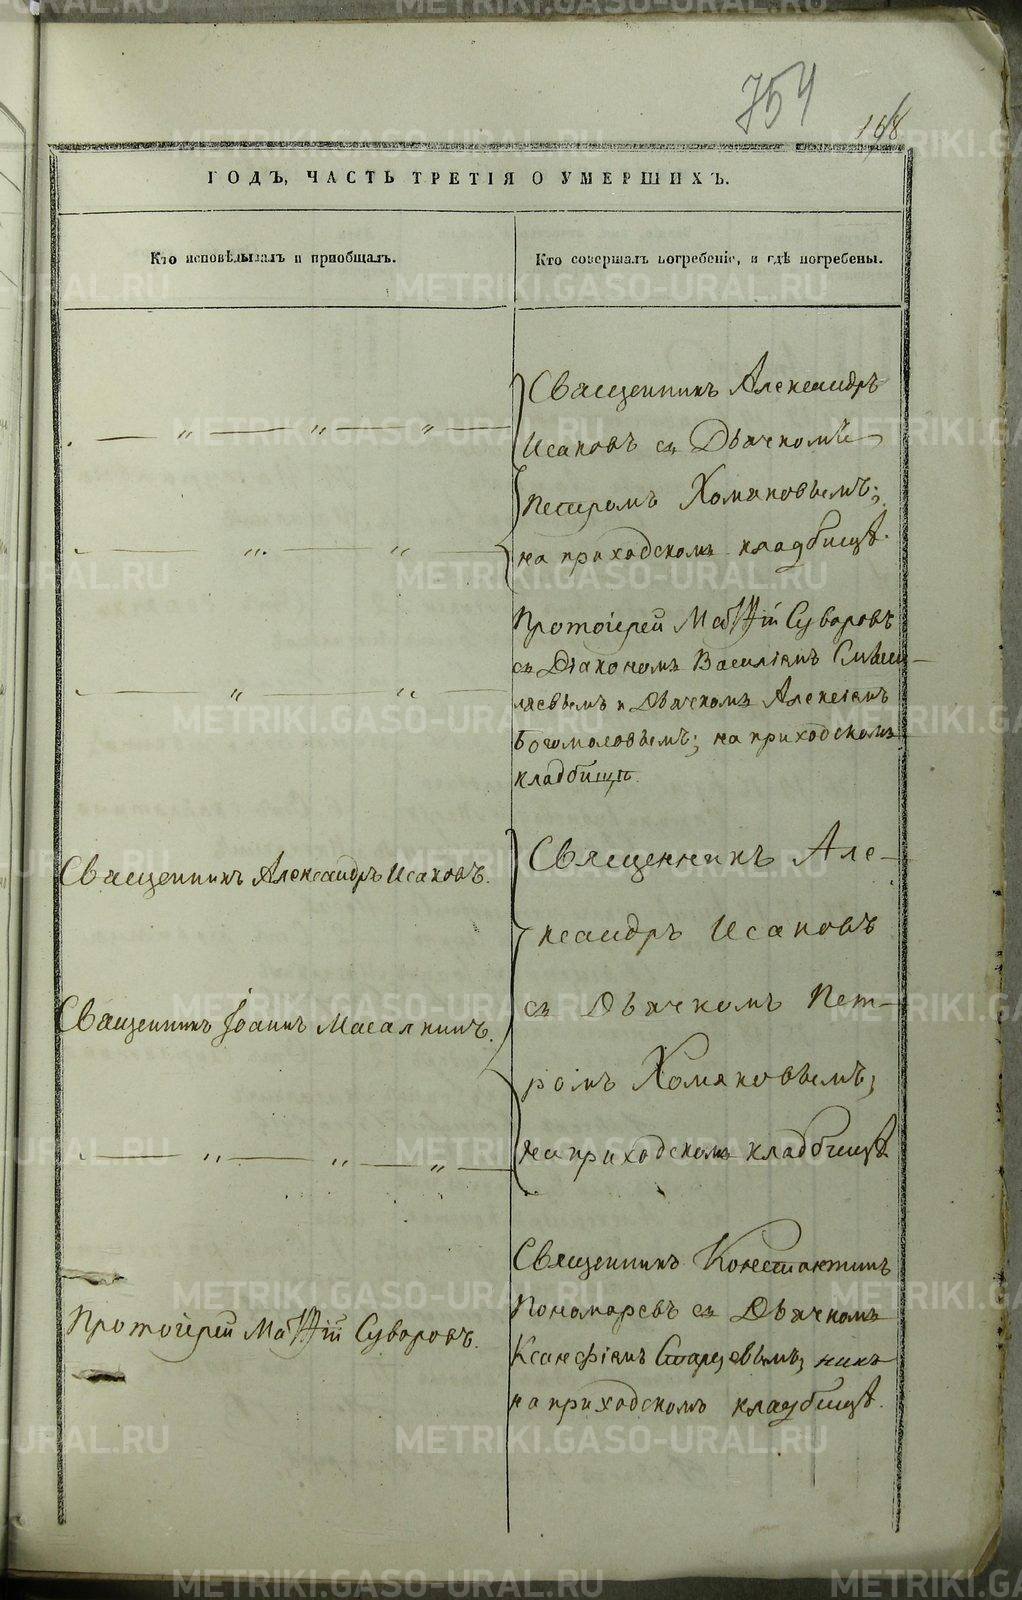 754
168
ГОДЪ, ЧАСТЬ ТРЕТІЯ О УМЕРШИХЪ.
Кто исповѣдывалъ и приобщалъ.
Кто совершалъ погребеніе, и гдѣ погребены.
Священникъ Александръ
Исаковъ съ Дьячкомъ
Петромъ Хомяковымъ;
на приходскомъ кладбищѣ.
Протоіерей Матѳій Суваровъ
съ Діакономъ Василіемъ
и Дьячкомъ Алексіемъ
Богомоловымъ; на приходскомъ
кладбищѣ.
Священникъ Александръ Исаковъ.
Священникъ Іоаннъ Масалкинъ.
Священникъ Але-
ксандръ Исаковъ
съ Дьячкомъ Пет-
ромъ Хомяковымъ;
на приходскомъ кладбищѣ
Протоіерей Матѳій Суваровъ.
Священникъ Константинъ
Пономаревъ съ Дьячкомъ
Ксанфіемъ Старцовымъ,
на приходскомъ кладбищѣ.
METRIKI.GASO-URAL.RU